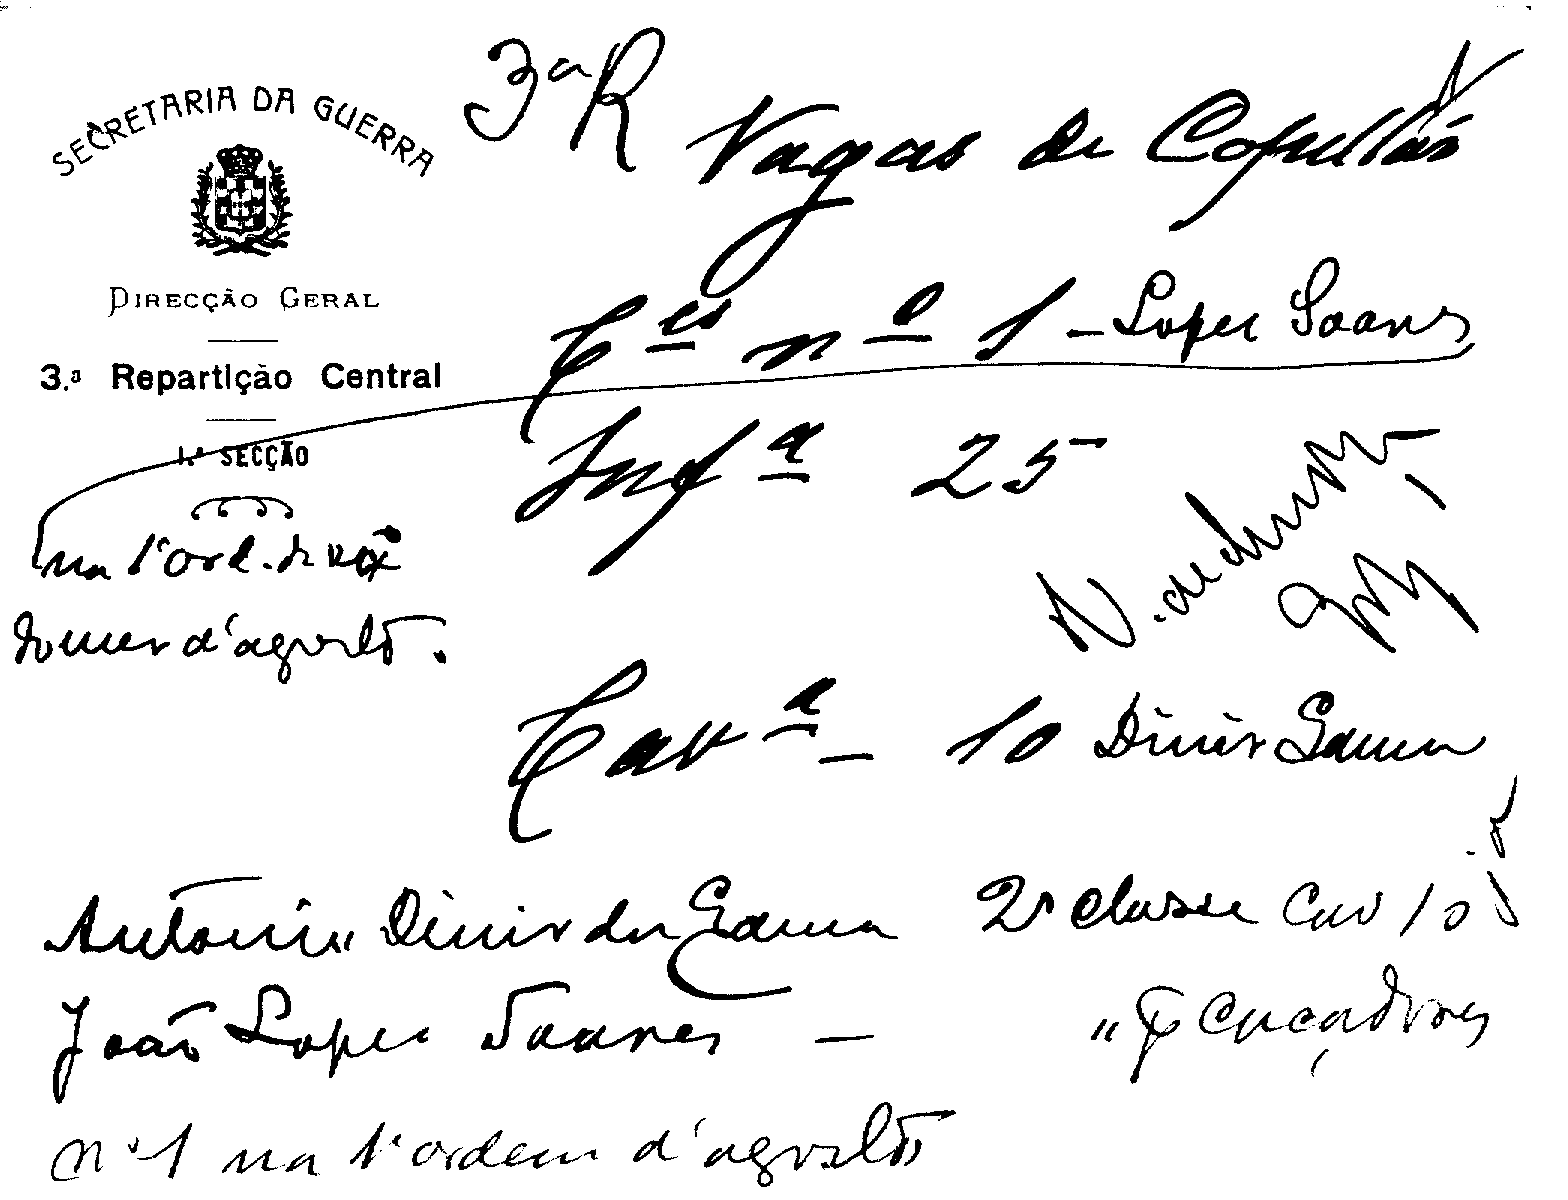 SECRETARIA DA GUERRA
DIRECÇÃO GERAL
3.ª Repartição Central
1.ª SECÇÃO
3ª R
Vagas de Capellães
Ces nº 1 - Lopes Soares
na 1ª ord. de
d'agosto.
Infª 25
Cavª - 10 Dinis Gama
Antonio Dinis da Gama 2ª classe Cav 10
João Lopes Soares - " Caçadores
nº 1 na 1ª ordem d'agosto